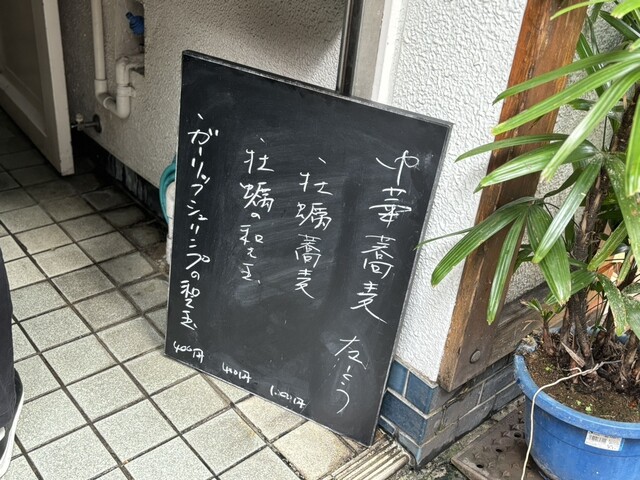 中華蕎麦 左とう
牡蠣蕎麦 1,000円
牡蠣の和え玉 400円
ガーリックシュリンプの和え玉 400円